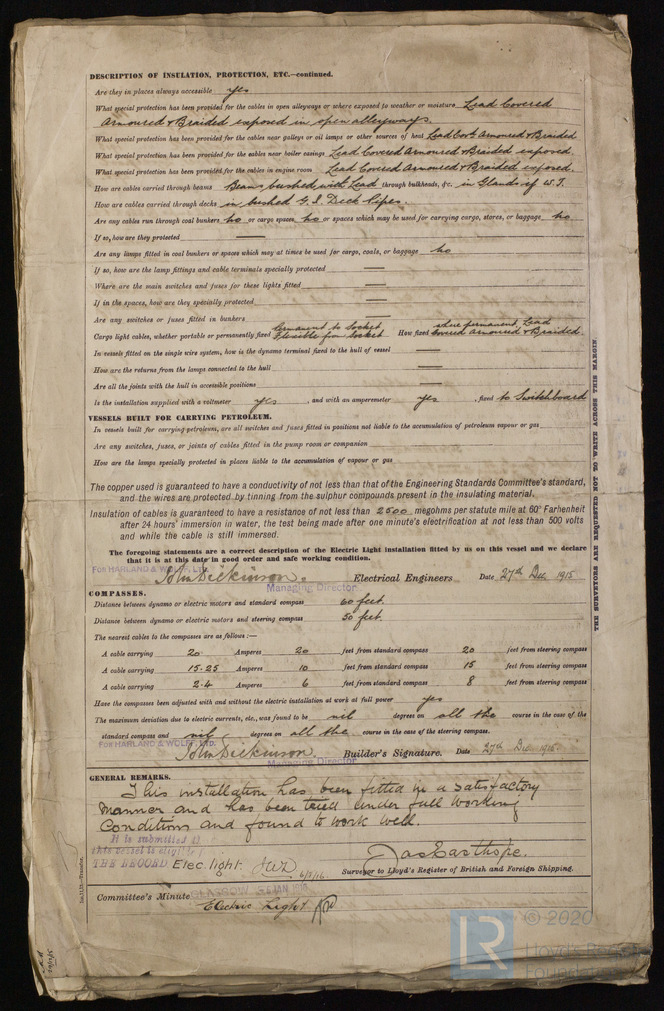 DESCRIPTION OF INSULATION, PROTECTION, ETC.—continued.
Are they in places always accessible yes
What special protection has been provided for the cables in open alleyways or where exposed to weather or moisture Lead Covered
Armoured & Braided exposed in open alleyways.
What special protection has been provided for the cables near galleys or oil lamps or other sources of heat Lead Cov'd Armoured & Braided
What special protection has been provided for the cables near boiler casings Lead Covered Armoured & Braided exposed
What special protection has been provided for the cables in engine room Lead Covered Armoured & Braided exposed.
How are cables carried through beams Beams bushed with Lead through bulkheads, &c. in Glands if W.T.
How are cables carried through decks in bushed G.I. Deck Pipes.
Are any cables run through coal bunkers no or cargo spaces no or spaces which may be used for carrying cargo, stores, or baggage no
If so, how are they protected —
Are any lamps fitted in coal bunkers or spaces which may at times be used for cargo, coals, or baggage no
If so, how are the lamp fittings and cable terminals specially protected —
Where are the main switches and fuses for these lights fitted —
If in the spaces, how are they specially protected —
Are any switches or fuses fitted in bunkers —
Cargo light cables, whether portable or permanently fixed Permanent to Socket Flexible from Socket How fixed where permanent, Lead Covered Armoured & Braided.
In vessels fitted on the single wire system, how is the dynamo terminal fixed to the hull of vessel —
How are the returns from the lamps connected to the hull —
Are all the joints with the hull in accessible positions —
Is the installation supplied with a voltmeter yes , and with an amperemeter yes , fixed to Switchboard
VESSELS BUILT FOR CARRYING PETROLEUM.
In vessels built for carrying petroleum, are all switches and fuses fitted in positions not liable to the accumulation of petroleum vapour or gas
Are any switches, fuses, or joints of cables fitted in the pump room or companion
How are the lamps specially protected in places liable to the accumulation of vapour or gas
The copper used is guaranteed to have a conductivity of not less than that of the Engineering Standards Committee's standard,
and the wires are protected by tinning from the sulphur compounds present in the insulating material.
Insulation of cables is guaranteed to have a resistance of not less than 2500 megohms per statute mile at 60° Farhenheit
after 24 hours' immersion in water, the test being made after one minute's electrification at not less than 500 volts
and while the cable is still immersed.
The foregoing statements are a correct description of the Electric Light installation fitted by us on this vessel and we declare
that it is at this date in good order and safe working condition.
FOR HARLAND & WOLFF, LTD.
John Dickinson. Electrical Engineers Date 27th Dec 1915
Managing Director
COMPASSES.
Distance between dynamo or electric motors and standard compass 60 feet.
Distance between dynamo or electric motors and steering compass 50 feet.
The nearest cables to the compasses are as follows:—
A cable carrying 20 Amperes 20 feet from standard compass 20 feet from steering compass
A cable carrying 15.25 Amperes 10 feet from standard compass 15 feet from steering compass
A cable carrying 2.4 Amperes 6 feet from standard compass 8 feet from steering compass
Have the compasses been adjusted with and without the electric installation at work at full power yes
The maximum deviation due to electric currents, etc., was found to be nil degrees on all the course in the case of the
standard compass and nil degrees on all the course in the case of the steering compass.
FOR HARLAND & WOLFF, LTD.
John Dickinson. Builder's Signature. Date 27th Dec 1915
Managing Director
GENERAL REMARKS.
This installation has been fitted in a satisfactory
manner and has been tried under full working
Conditions and found to work well.
It is submitted that
this vessel is eligible
THE RECORD Elec. light. JWD 6/1/16.
Jas Easthope.
Surveyor to Lloyd's Register of British and Foreign Shipping.
Committee's Minute GLASGOW JAN 1916
Electric Light
THE SURVEYORS ARE REQUESTED NOT TO WRITE ACROSS THIS MARGIN
LR
© 2020
Lloyd's Register
Foundation